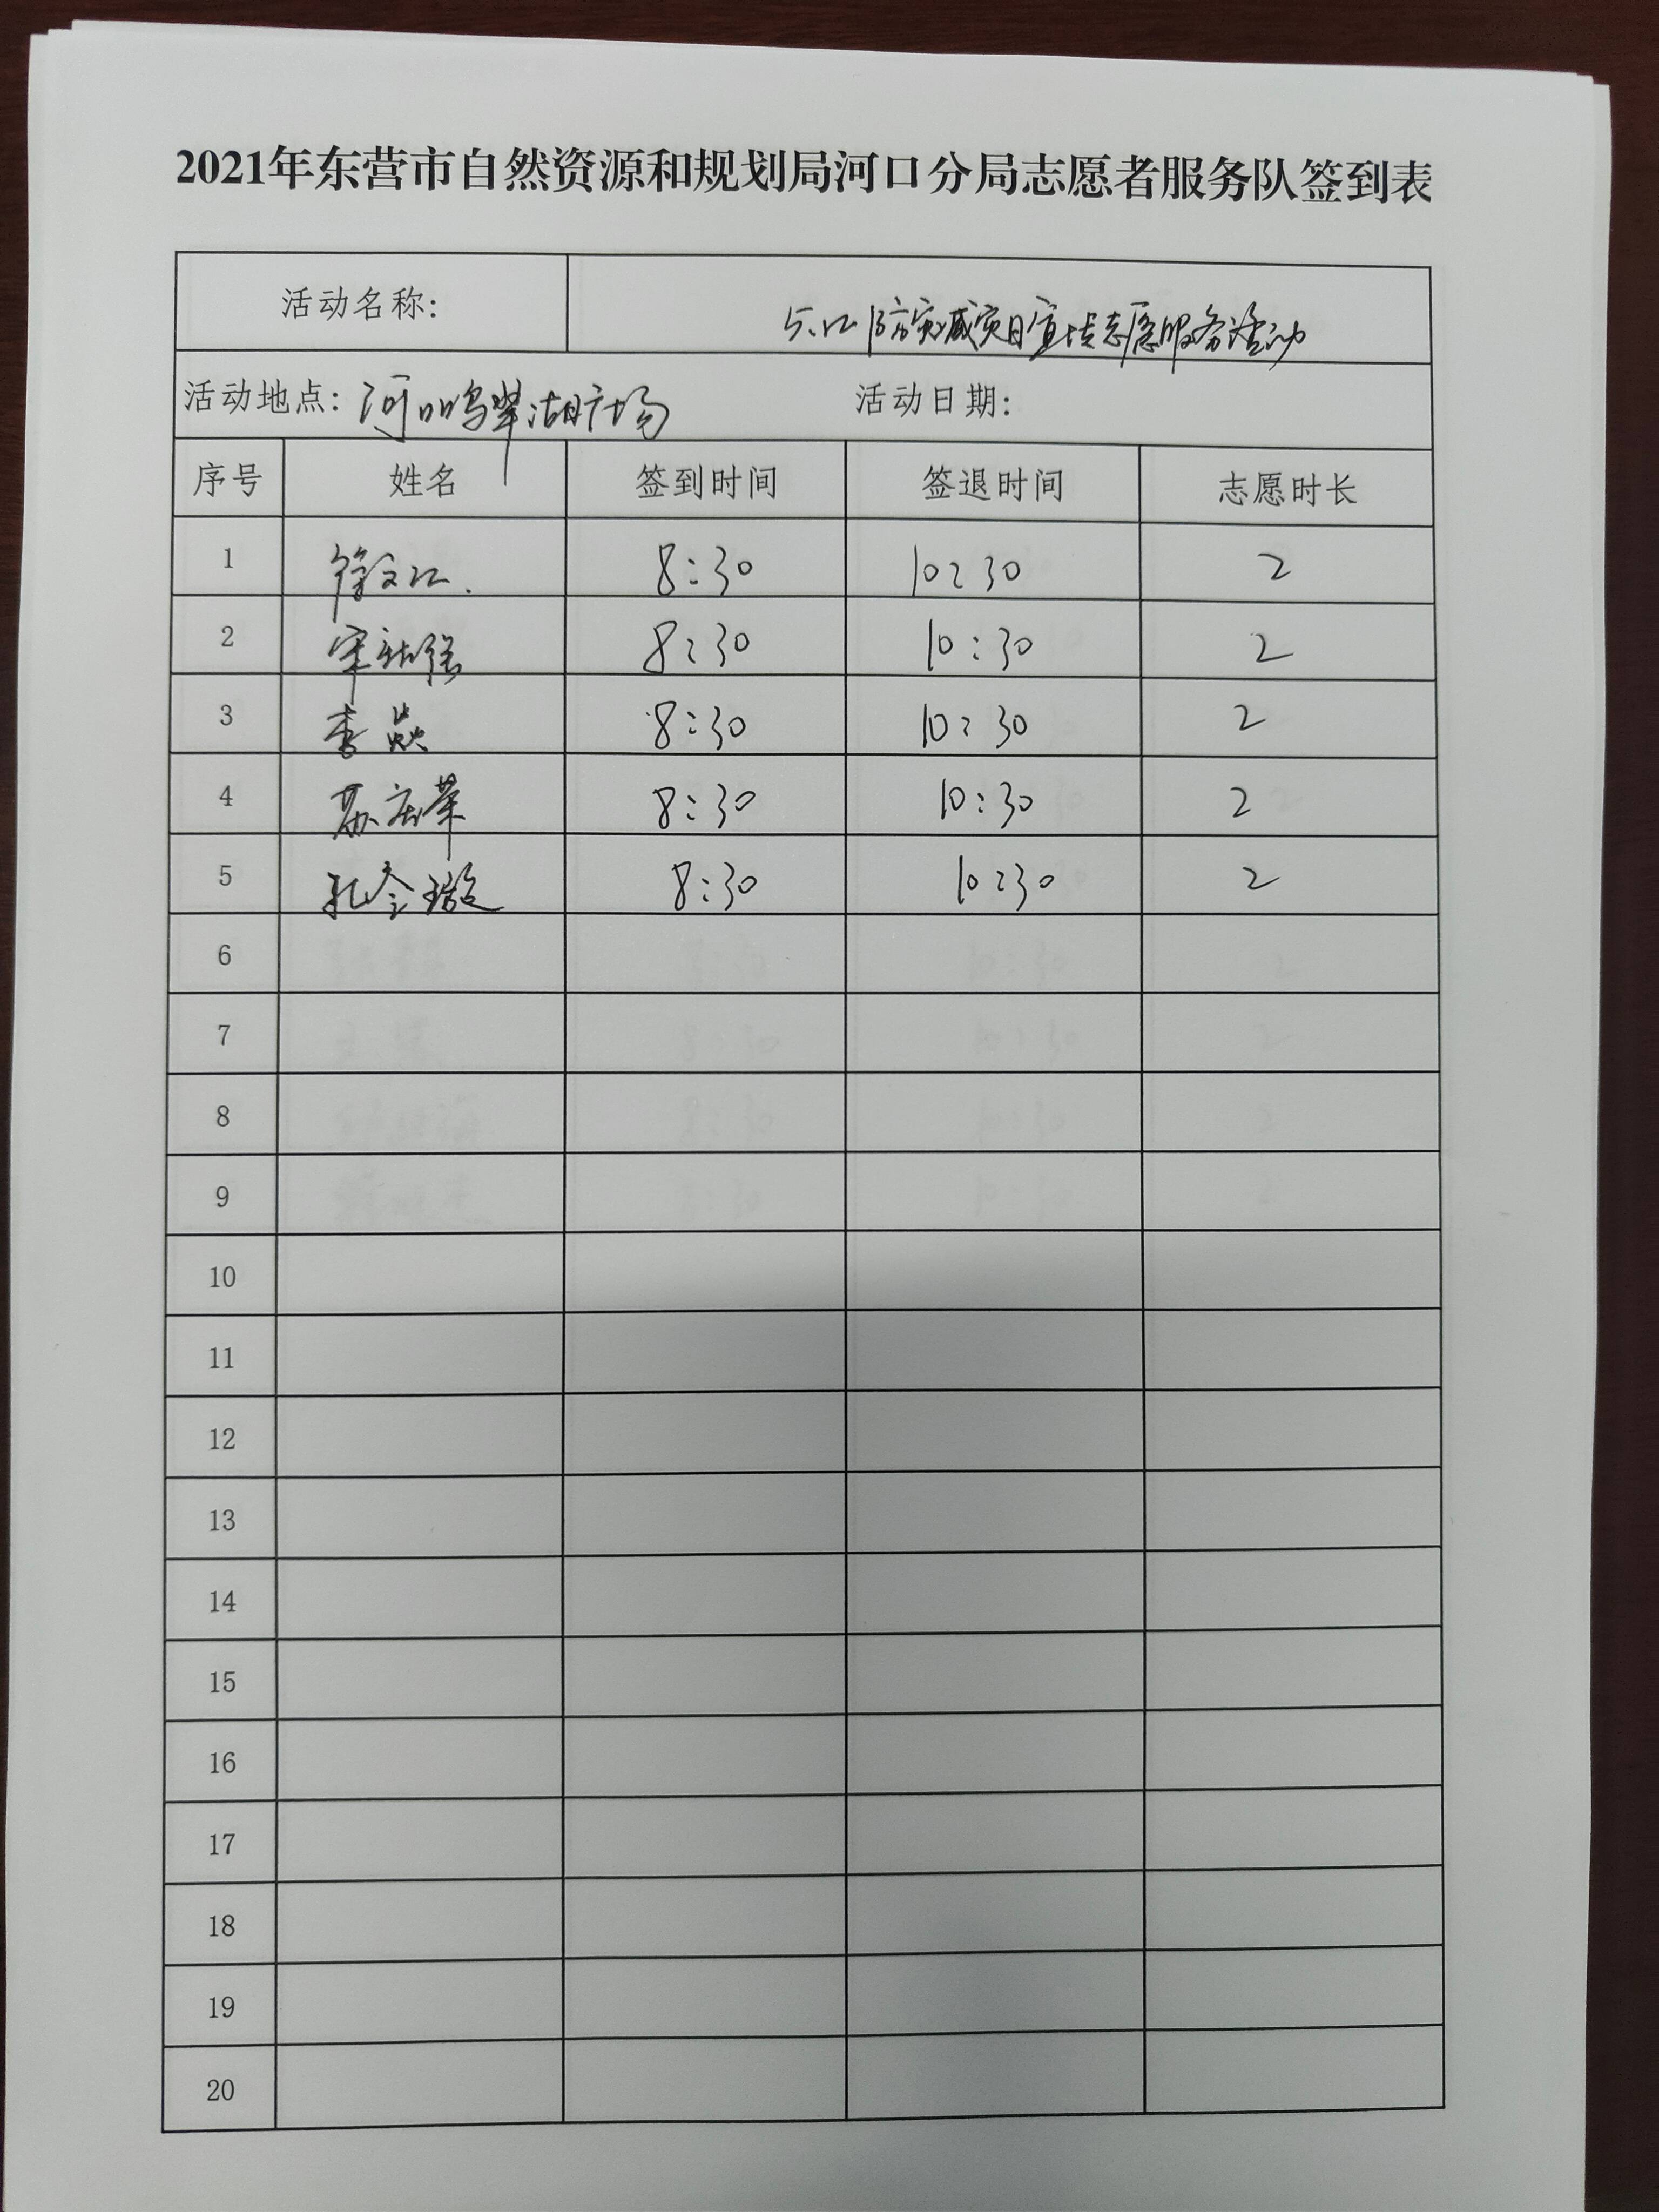 2021年东营市自然资源和规划局河口分局志愿者服务队签到表
活动名称: 5.12防灾减灾日宣传志愿服务活动
活动地点: 河口鸣翠湖广场 活动日期:
序号 姓名 签到时间 签退时间 志愿时长
1 徐文江. 8:30 10:30 2
2 宋 强 8:30 10:30 2
3 李焱 8:30 10:30 2
4 苏庆荣 8:30 10:30 2
5 孔令璇 8:30 10:30 2
6
7
8
9
10
11
12
13
14
15
16
17
18
19
20